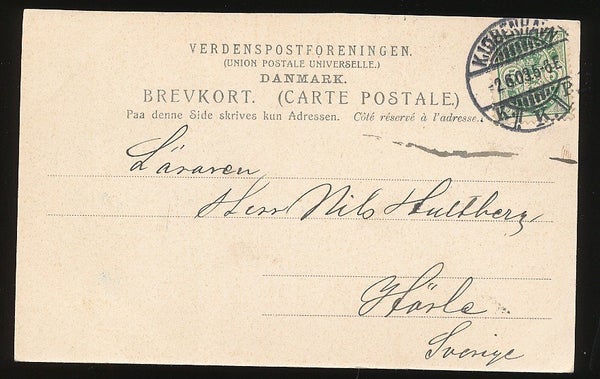 VERDENSPOSTFORENINGEN.
(UNION POSTALE UNIVERSELLE.)
DANMARK.
BREVKORT. (CARTE POSTALE.)
Paa denne Side skrives kun Adressen. Côté réservé à l'adresse.
KJØBENHAVN
K. K.
Läraren
Herr Nils Hultberg
Sverige